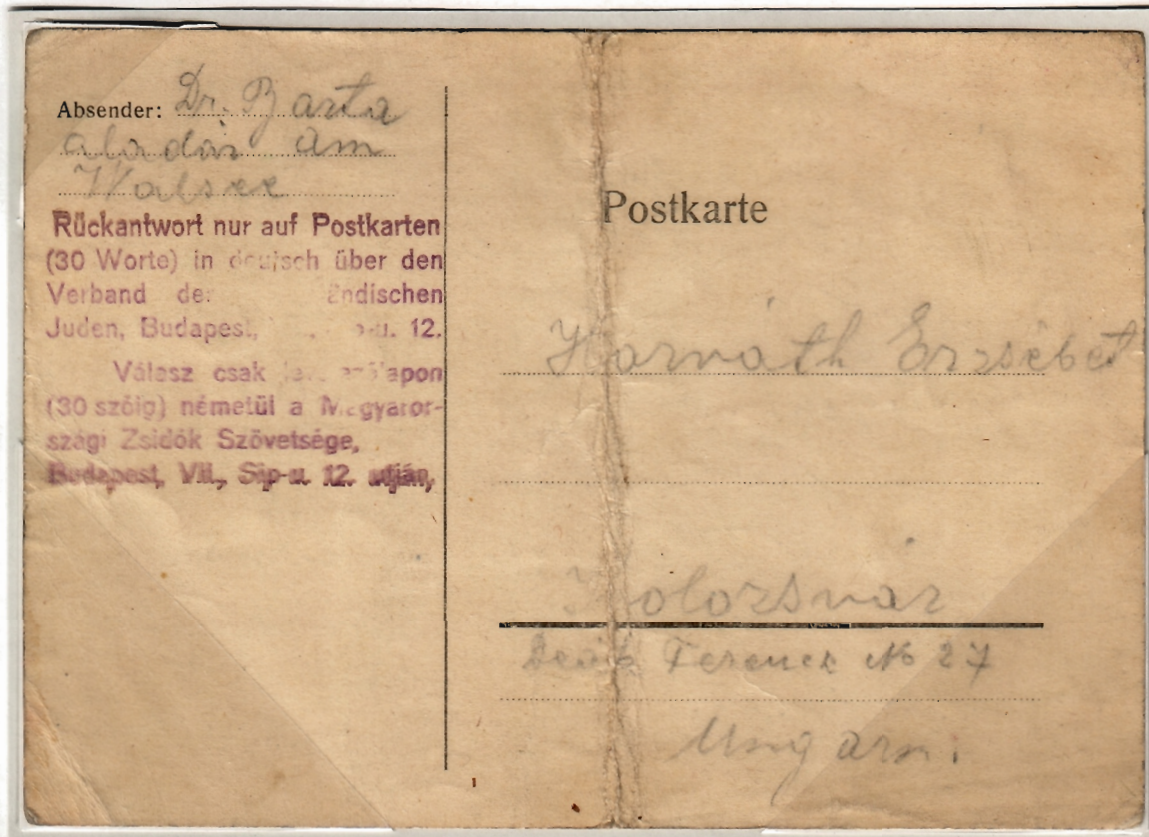 Absender: Dr. Barta
aladár am
Walsee
Rückantwort nur auf Postkarten
(30 Worte) in deutsch über den
Verband ändischen
Juden, Budapest, 12.
Válasz csak
(30 szóig) németül a Magyaror-
szági Zsidók Szövetsége,
Budapest, VII., Síp-u. 12. utján,
Postkarte
Horváth Erzsébet
Kolozsvár
Deák Ferencz No 27
Ungarn.